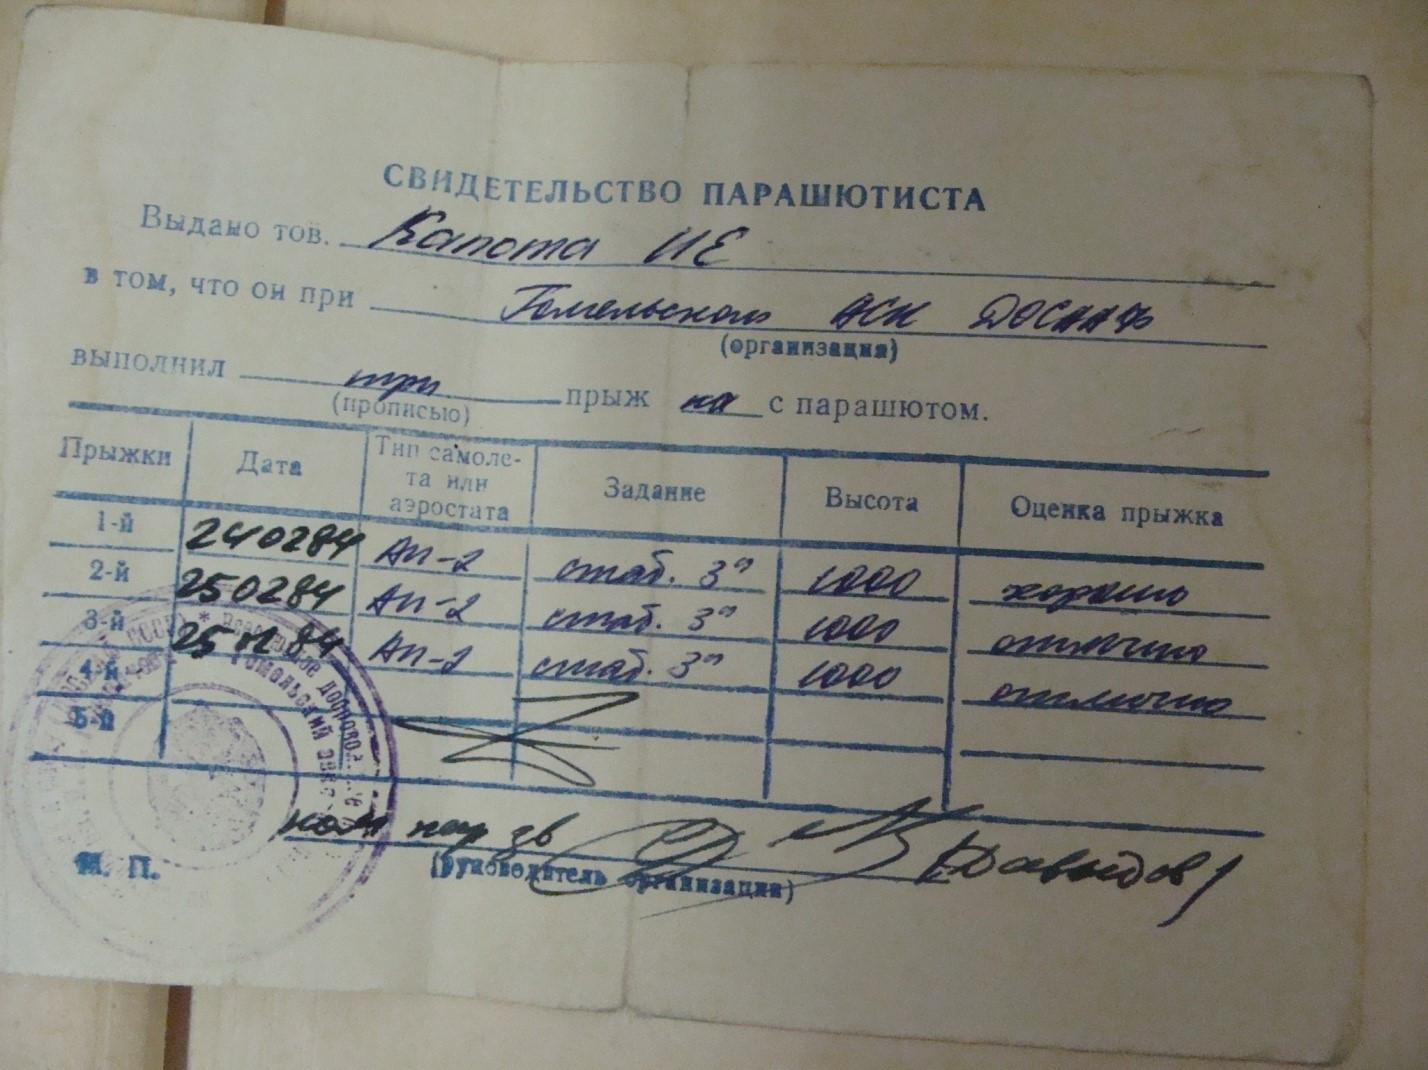 СВИДЕТЕЛЬСТВО ПАРАШЮТИСТА
Выдано тов. Капота ИЕ
в том, что он при Гомельском АСК ДОСААФ
(организация)
выполнил три прыж ка с парашютом.
(прописью)
Прыжки Дата Тип самоле- Задание Высота Оценка прыжка
та или
аэростата
1-й 240284 Ан-2 стаб. 3" 1000 хорошо
2-й 250284 Ан-2 стаб. 3" 1000 отлично
3-й 25 02 84 Ан-2 стаб. 3" 1000 отлично
4-й
5-й
ком пар зв (Давыдов)
(руководитель организации)
М. П.
СССР * Всесоюзное добровольное
Гомольский